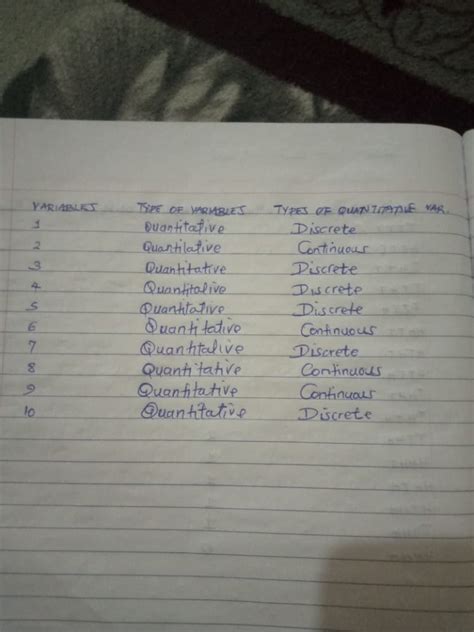 VARIABLES TYPE OF VARIABLES TYPES OF QUANTITATIVE VAR.
1 Quantitative Discrete
2 Quantitative Continuous
3 Quantitative Discrete
4 Quantitative Discrete
5 Quantitative Discrete
6 Quantitative Continuous
7 Quantitative Discrete
8 Quantitative Continuous
9 Quantitative Continuous
10 Quantitative Discrete